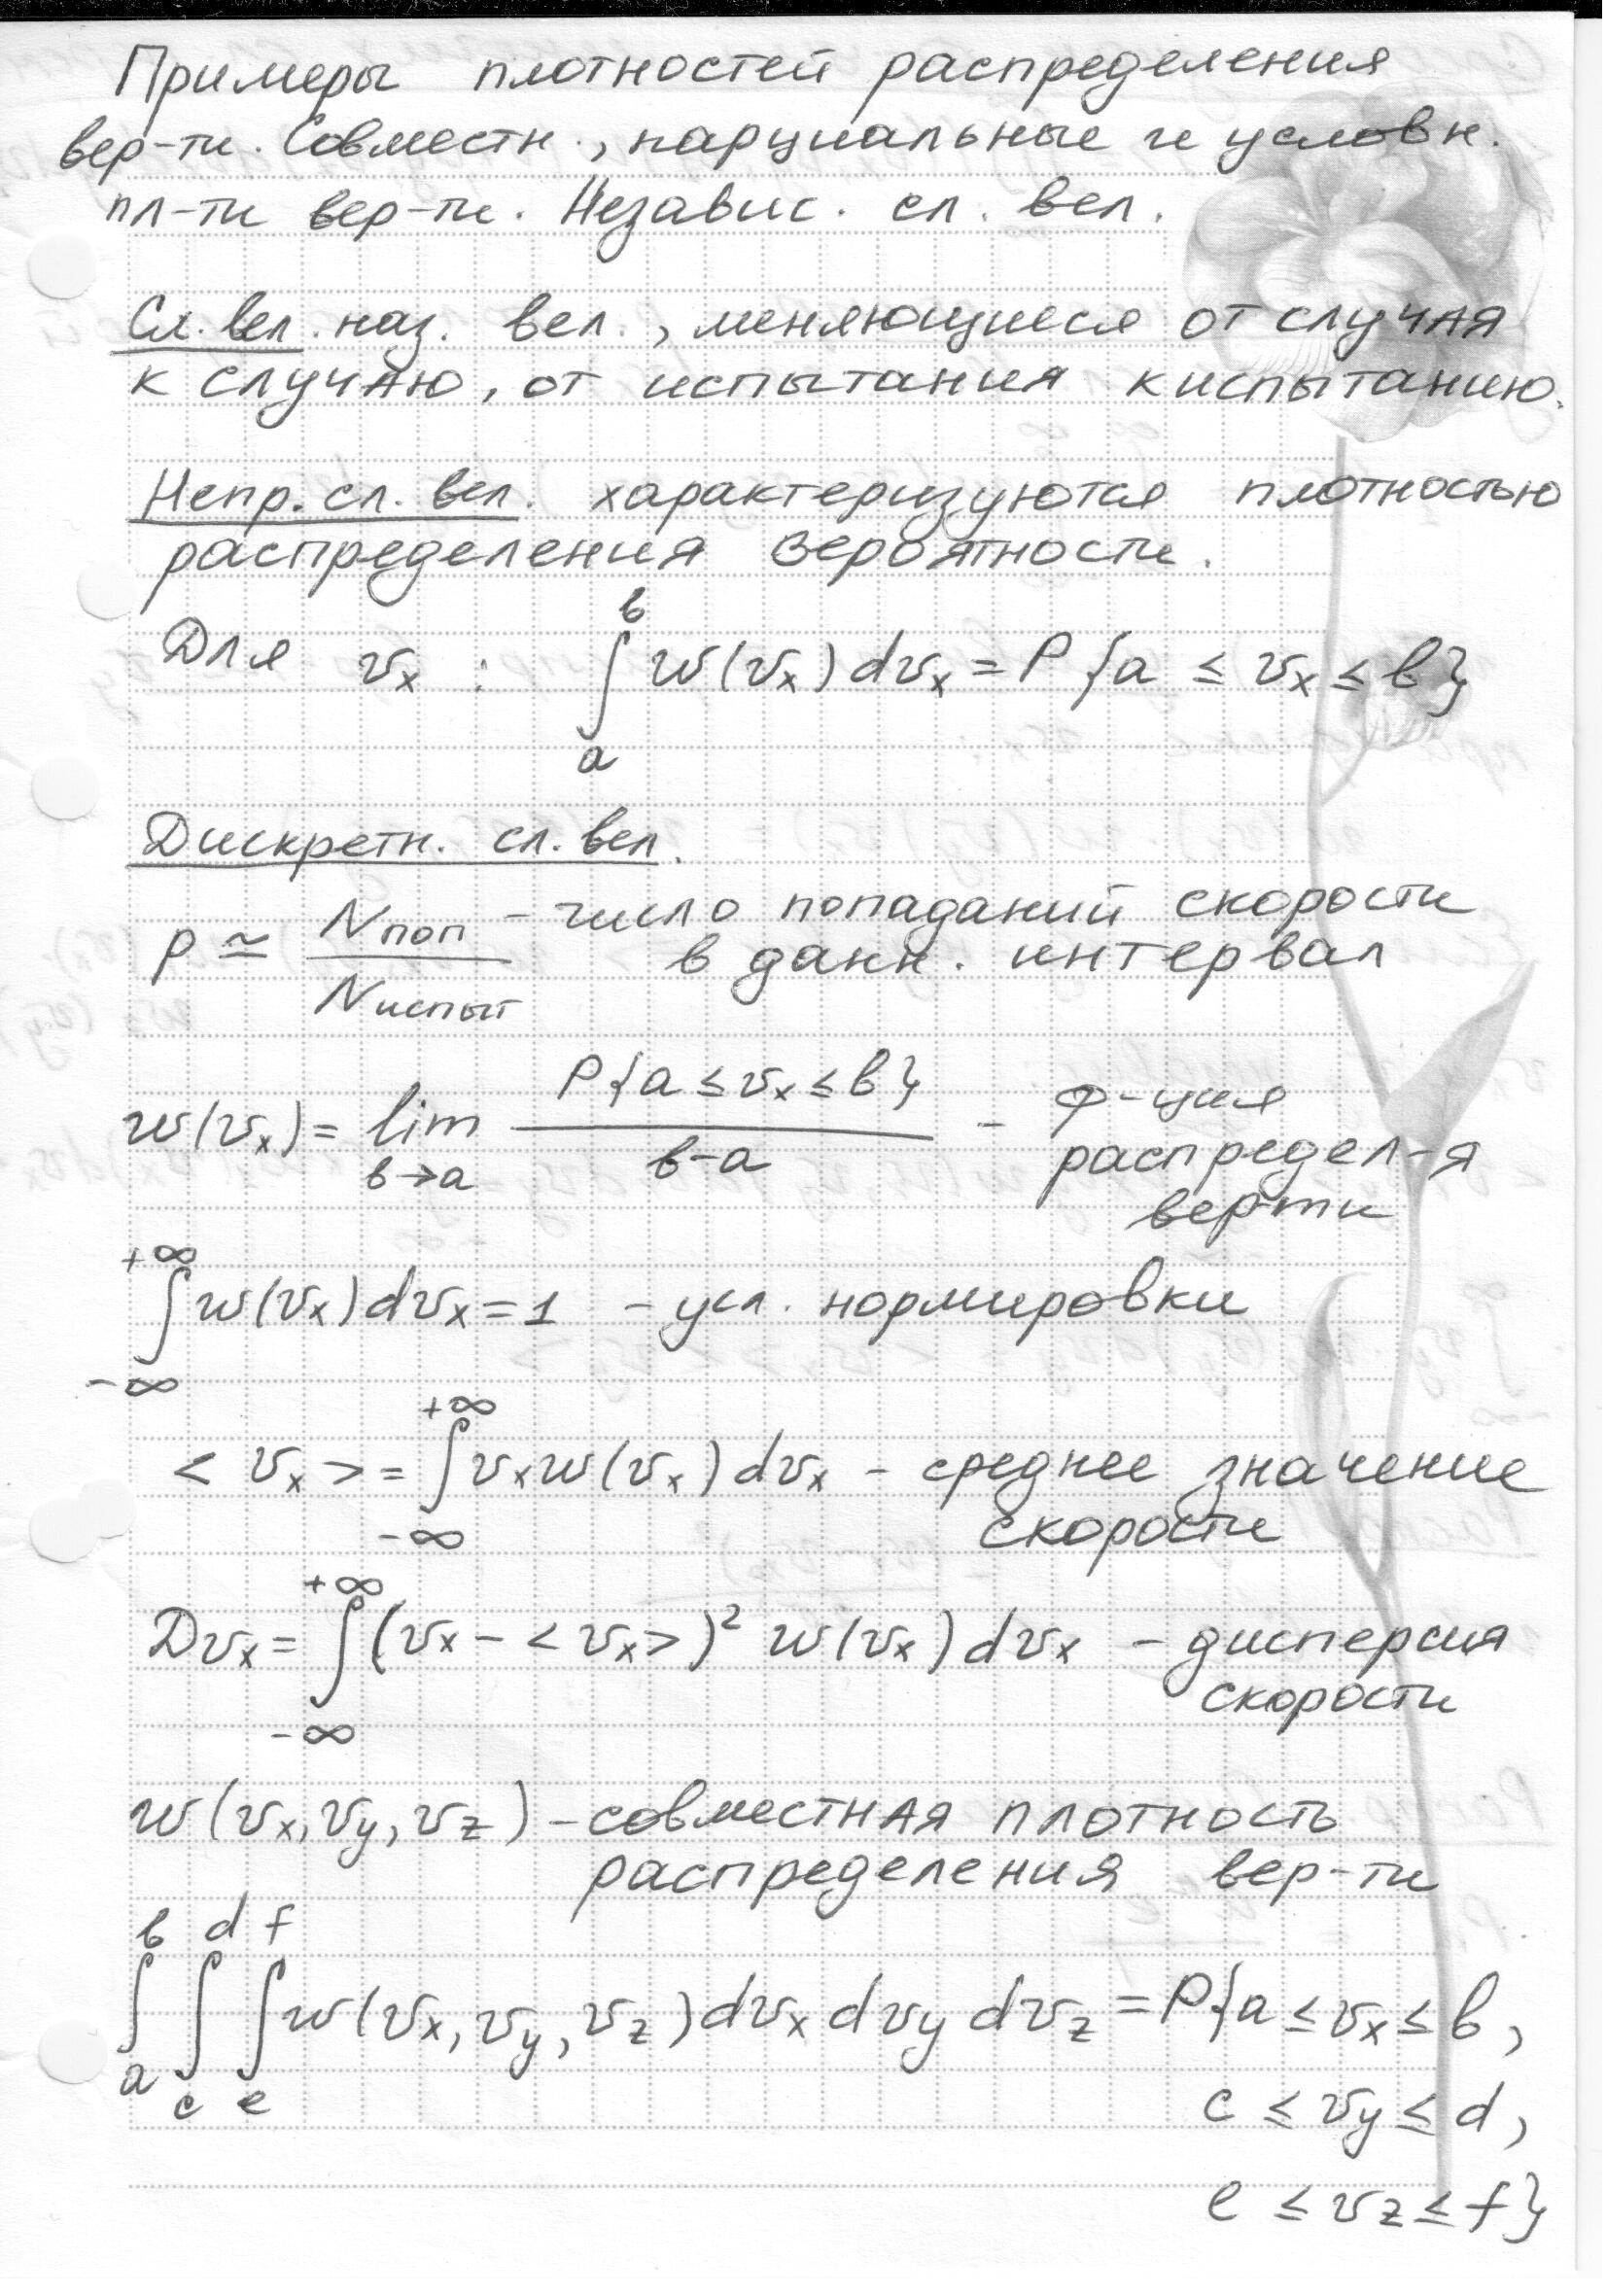 Примеры плотностей распределения
вер-ти. Совместн., парциальные и условн.
пл-ти вер-ти. Независ. сл. вел.
Сл. вел. наз. вел., меняющиеся от случая
к случаю, от испытания к испытанию.
Непр. сл. вел. характеризуются плотностью
распределения вероятности.
Для vₓ : ∫ₐᵇ w(vₓ)dvₓ = P{a ≤ vₓ ≤ b}
Дискретн. сл. вел.
p ≃ Nпоп / Nиспыт - число попаданий скорости
в данн. интервал
w(vₓ) = lim b→a P{a ≤ vₓ ≤ b} / b-a - ф-ция
распредел-я
вер-ти
∫₋∞⁺∞ w(vₓ)dvₓ = 1 - усл. нормировки
<vₓ> = ∫₋∞⁺∞ vₓw(vₓ)dvₓ - среднее значение
скорости
Dvₓ = ∫₋∞⁺∞ (vₓ - <vₓ>)² w(vₓ)dvₓ - дисперсия
скорости
w(vₓ, vy, vz) - совместная плотность
распределения вер-ти
∫ₐᵇ ∫cᵈ ∫ₑᶠ w(vₓ, vy, vz)dvₓ dvy dvz = P{a ≤ vₓ ≤ b,
c ≤ vy ≤ d,
e ≤ vz ≤ f}